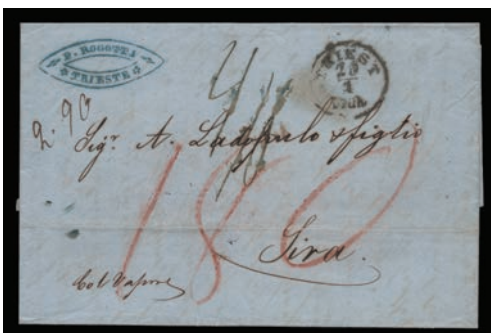 P. ROGOTTA
TRIESTE
TRIEST
29
1
2.90
Sigr. A. Ladopulo & figlio
180
Sira.
Col Vapore